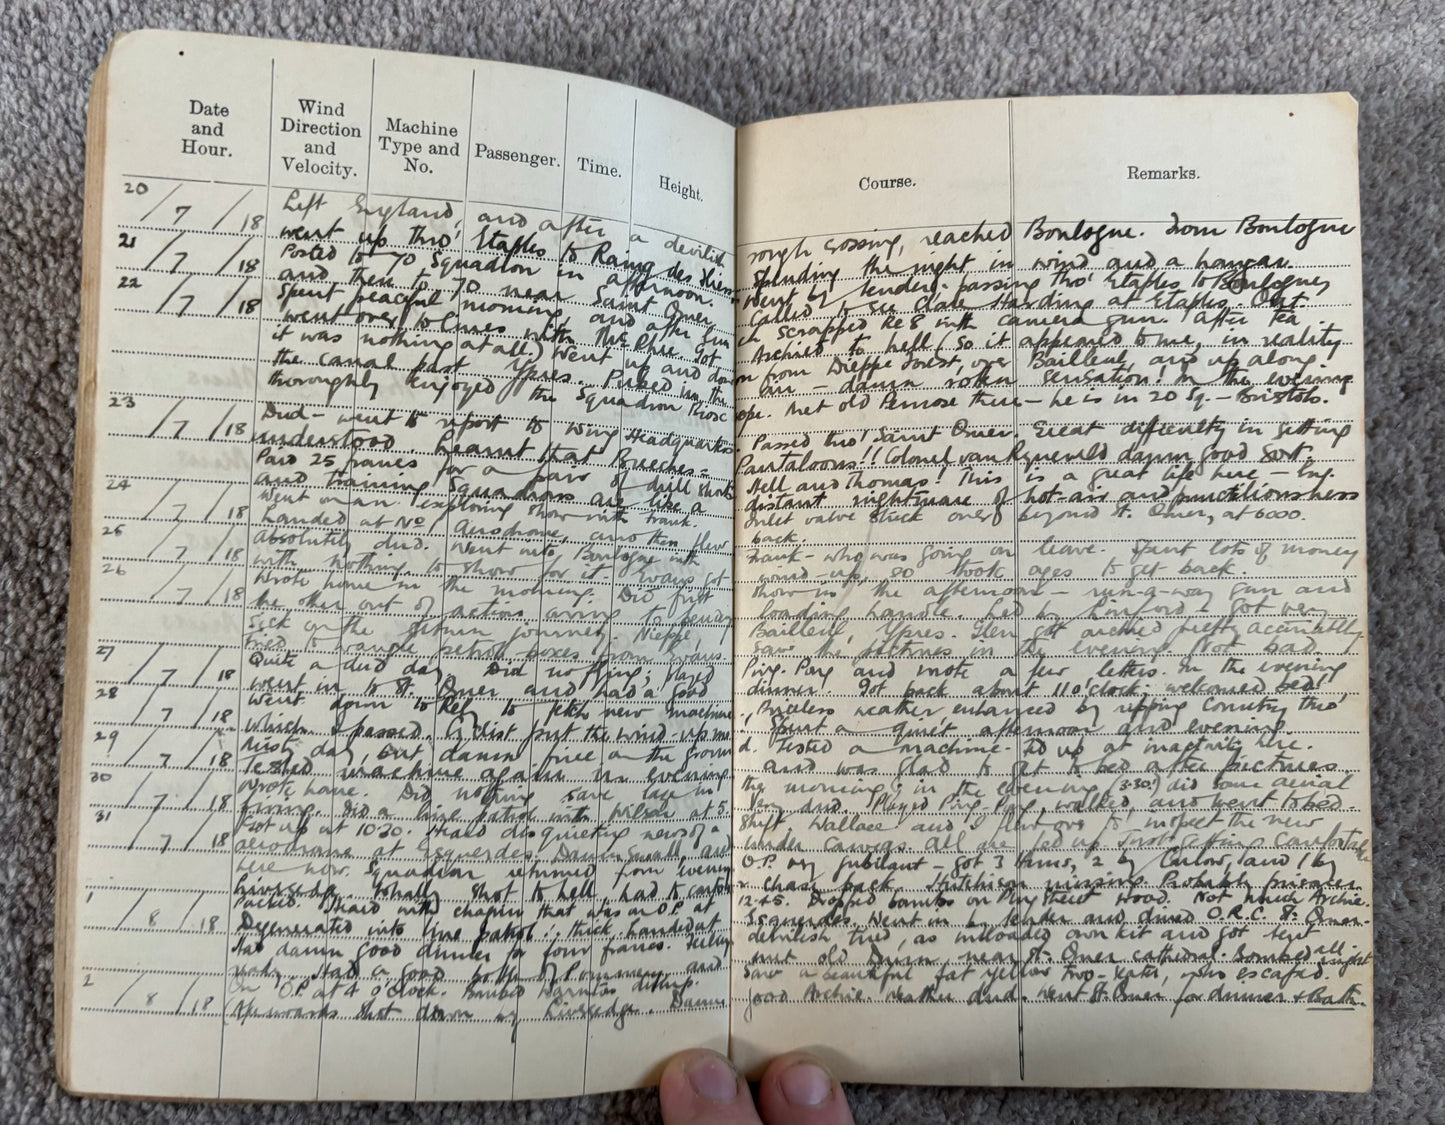 Date and Hour. Wind Direction and Velocity. Machine Type and No. Passenger. Time. Height. Course. Remarks.
20/7/18 Left England, and after a devilish rough crossing, reached Boulogne. From Boulogne
went up thro' Etaples to Rang des Fliers spending the night in wind and a hangar.
21/7/18 Posted to 70 Squadron in afternoon. Went by tender passing thro' Etaples to Boulogne
and then to 70 near Saint Omer. Called to see Clare Harding at Etaples.
22/7/18 Spent peaceful morning, and after gun scrapped Re 8 with camera gun. After tea
went over to lines with the Got Archied to hell (So it appeared to me, in reality
it was nothing at all.) Went up and down from Dieppe Forest, over Bailleul, and up along
the canal past Ypres. Puked in the air — damn rotten sensation! In the evening
thoroughly enjoyed the Squadron Met old Penrose there — he is in 20 Sq. — Bristols.
23/7/18 Dud — went to report to Wing Headquarters. Passed thro' Saint Omer. Great difficulty in getting
understood. Learnt that Breeches = Pantaloons!! Colonel van Ryneveld damn good sort.
Paid 25 francs for a pair of drill shorts Hell and Thomas! This is a great life here —
and training Squadrons are like a distant nightmare of hot-air and punctiliousness
24/7/18 Went on an exploring show with Frank. Inlet valve stuck over & beyond St. Omer, at 6000.
Landed at No 1 Aerodrome, and then flew back.
25/7/18 Absolutely dud. Went into Boulogne with Frank — who was going on leave. Spent lots of money
with nothing to show for it. Evans got wind-up, so took ages to get back.
26/7/18 Wrote home in the morning. Did first show in the afternoon — run-a-way gun and
the other out of action owing to loading handle. Led by — got very
sick on the return journey. Nieppe, Bailleul, Ypres. Glen got archied pretty accurately.
Tried to wangle petrol boxes from Evans. Saw the pictures in the evening. Not bad.
27/7/18 Quite a dud day. Did nothing; played Ping-Pong and wrote a few letters. In the evening
went in to St. Omer and had a good dinner. Got back about 11 o'clock; welcomed bed!
28/7/18 Went down to to fetch new machine. Priceless weather enhanced by ripping country thro'
which I passed. Cyclist put the wind-up me. Spent a quiet afternoon and evening.
29/7/18 Misty day, but damn fine on the ground. Tested a machine — fed up at inactivity here.
Tested machine again in evening and was glad to get to bed after pictures
30/7/18 Wrote home. Did nothing save laze in the morning; in the evening (3.30) did some aerial
firing. Did a line patrol with Wilson at 5. Very dud. Played Ping-Pong, walked, and went to bed.
31/7/18 Got up at 10.20. Heard disquieting news of a shift. Wallace and I flew over to inspect the new
aerodrome at Esquerdes. Damn small, and under canvas. All are fed up. Just getting comfortable
here now. Squadron returned from evening O.P. very jubilant — got 3 Huns, 2 by Carlow, and 1 by
Liversedge. Totally shot to hell had to chase back. Hutchison missing. Probably prisoner.
1/8/18 Packed. Heard with chagrin that I was on O.P. at 12.45. Dropped bombs on Ploegsteert Wood. Not much Archie.
Degenerated into line patrol! Thick. Landed at Esquerdes. Went in by tender and dined O.R.C. St. Omer.
Had damn good dinner for four francs. Feeling devilish tired, as unloaded own kit and got tent
up. Had a good bottle of Pommery, and met old Dunn near St. Omer cathedral. Bombed all night
2/8/18 On O.P. at 4 o'clock. Bombed Warneton dump. Saw a beautiful fat yellow two-seater, who escaped.
(Afterwards shot down by Liversedge. Damn good Archie. Weather dud. Went St. Omer for dinner & Bath.